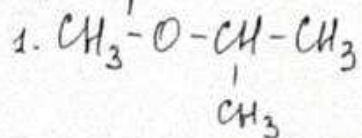 1. CH₃-O-CH-CH₃
CH₃